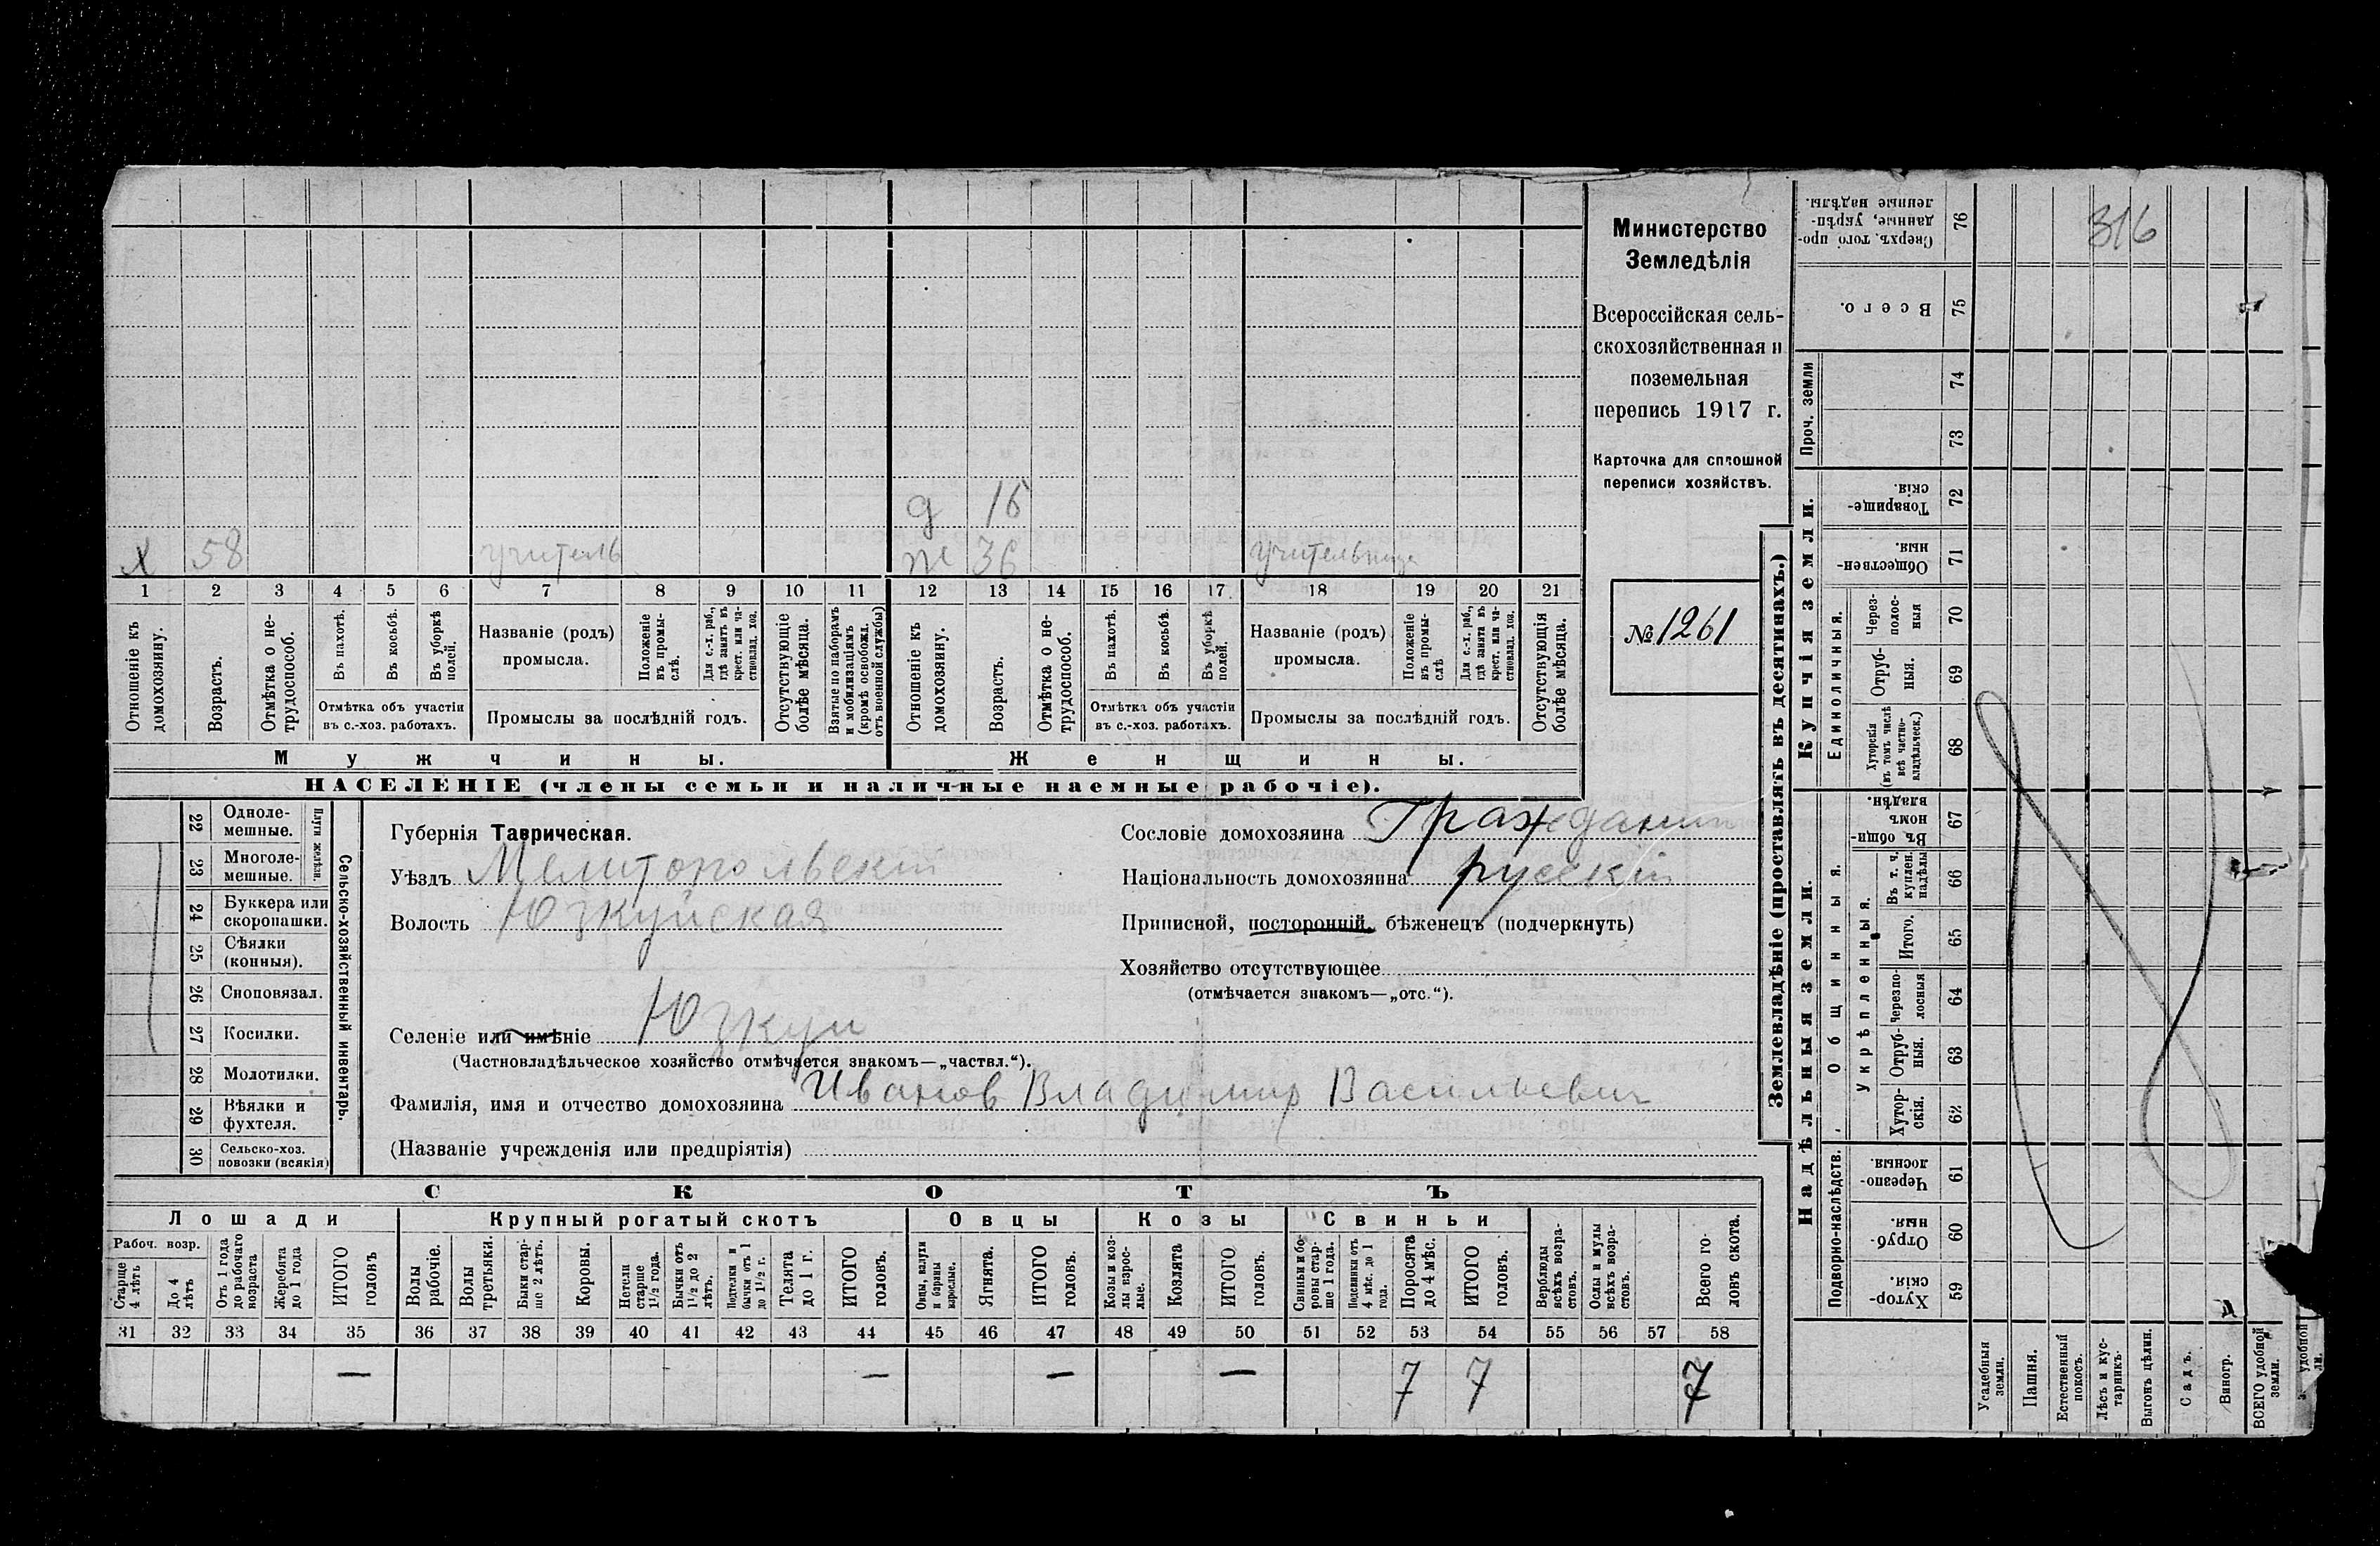 Министерство
Земледѣлія
Всероссійская сель-
скохозяйственная и
поземельная
перепись 1917 г.
Карточка для сплошной
переписи хозяйствъ.
№ 1261
д 16
х 58 учитель ж 36 учительница
1 2 3 4 5 6 7 8 9 10 11 12 13 14 15 16 17 18 19 20 21
Отношеніе къ домохозяину.
Возрастъ.
Отмѣтка о не-трудоспособ.
Въ пахотѣ.
Въ косьбѣ.
Въ уборкѣ полей.
Отмѣтка объ участіи
въ с.-хоз. работахъ.
Названіе (родъ)
промысла.
Положеніе въ промы-слѣ.
Для с.-х. раб., гдѣ занятъ въ крест. или ча-стновлад. хоз.
Промыслы за послѣдній годъ.
Отсутствующіе болѣе мѣсяца.
Взятые по наборамъ и мобилизаціямъ (кромѣ освобожд. отъ военной службы)
Отношеніе къ домохозяину.
Возрастъ.
Отмѣтка о не-трудоспособ.
Въ пахотѣ.
Въ косьбѣ.
Въ уборкѣ полей.
Отмѣтка объ участіи
въ с.-хоз. работахъ.
Названіе (родъ)
промысла.
Положеніе въ промы-слѣ
Для с.-х. раб., гдѣ занята въ крест. или ча-стновлад. хоз.
Промыслы за послѣдній годъ.
Отсутствующія болѣе мѣсяца.
Мужчины. Женщины.
НАСЕЛЕНІЕ (члены семьи и наличные наемные рабочіе).
Сельско-хозяйственный инвентарь.
Плуги желѣзн.
22 Одноле-мешные.
23 Многоле-мешные.
24 Буккера или скоропашки.
25 Сѣялки (конныя).
26 Сноповязал.
27 Косилки.
28 Молотилки.
29 Вѣялки и фухтеля.
30 Сельско-хоз. повозки (всякія)
Губернія Таврическая.
Уѣздъ Мелитопольскій
Волость Юзкуйская
Селеніе или имѣніе Юзкуи
(Частновладѣльческое хозяйство отмѣчается знакомъ—„частвл.“).
Фамилія, имя и отчество домохозяина Иванов Владимир Васильевич
(Названіе учрежденія или предпріятія)
Сословіе домохозяина Гражданин
Національность домохозяина русскій
Приписной, посторонній, бѣженецъ (подчеркнуть)
Хозяйство отсутствующее
(отмѣчается знакомъ—„отс.“).
СКОТЪ
Лошади Крупный рогатый скотъ Овцы Козы Свиньи
Рабоч. возр.
Старше 4 лѣтъ
До 4 лѣтъ
Отъ 1 года до рабочаго возраста
Жеребята до 1 года
ИТОГО головъ
Волы рабочіе.
Волы третьяки.
Быки стар-ше 2 лѣтъ.
Коровы.
Нетели старше 1 1/2 года.
Бычки отъ 1 1/2 до 2 лѣтъ.
Подтелки и бычки отъ 1 до 1 1/2 г.
Телята до 1 г.
ИТОГО головъ.
Овцы, валухи и бараны взрослые.
Ягнята.
ИТОГО головъ.
Козы и коз-лы взрос-лые.
Козлята
ИТОГО головъ.
Свиньи и бо-ровы стар-ше 1 года.
Подсвинки отъ 4 мѣс. до 1 года.
Поросята до 4 мѣс.
ИТОГО головъ.
Верблюды всѣхъ возра-стовъ.
Ослы и мулы всѣхъ возра-стовъ.
Всего го-ловъ скота.
31 32 33 34 35 36 37 38 39 40 41 42 43 44 45 46 47 48 49 50 51 52 53 54 55 56 57 58
— — — — 7 7 7
Землевладѣніе (проставлять въ десятинахъ.)
Купчія земли.
Надѣльныя земли.
Сверхъ того про-данные, укрѣп-ленные надѣлы. 76
316
Всего. 75
Проч. земли 74
73
Товарище-скія. 72
Обществен-ныя. 71
Единоличныя.
Через-полос-ныя 70
Отруб-ныя. 69
Хуторскія (въ томъ числѣ всѣ частно-владѣльческ.) 68
Въ общи-номъ владѣн. 67
Общинныя.
Укрѣпленныя.
Въ т. ч. куплен. надѣлы 66
Итого. 65
Черезпо-лосныя 64
Отруб-ныя. 63
Хутор-скія. 62
Подворно-наслѣдств.
Черезпо-лосныя. 61
Отруб-ныя. 60
Хутор-скія. 59
Усадебныя земли.
Пашня.
Естественный покосъ.
Лѣсъ и кус-тарникъ.
Выгонъ цѣлин.
Садъ.
Виногр.
ВСЕГО удобной земли.
удобной
ли.